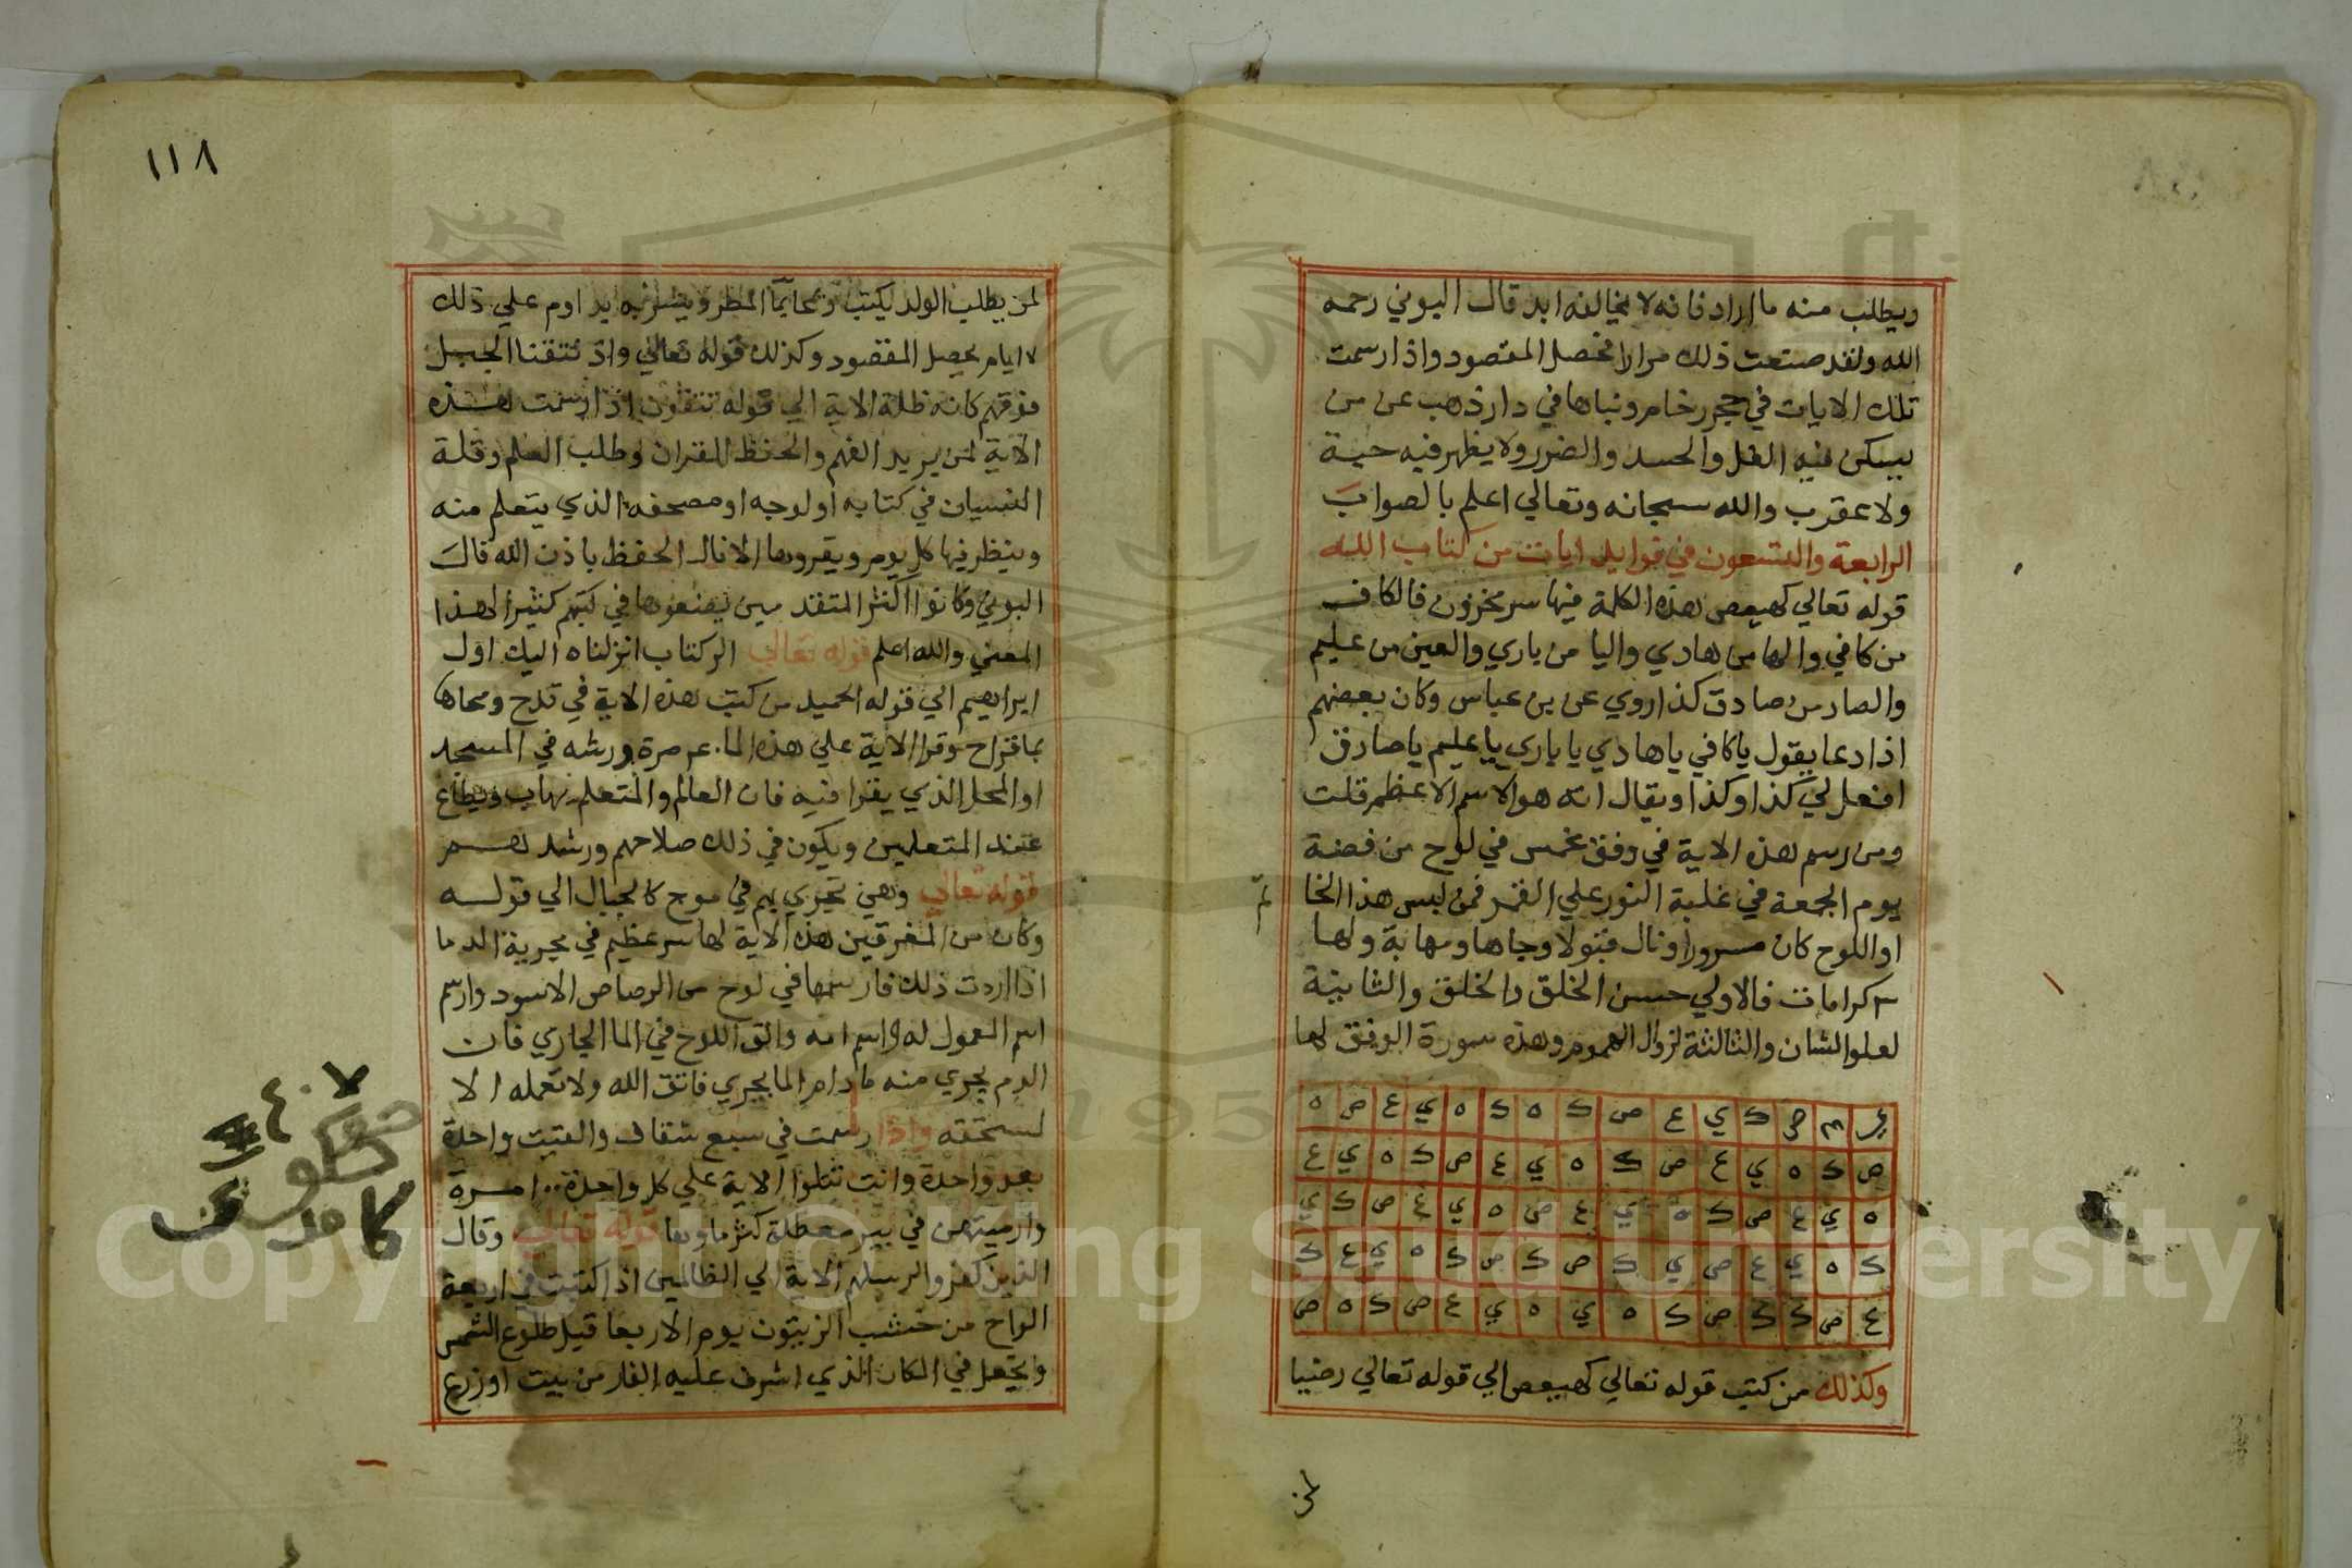 ويطلب منه ما اراد فانه لا يخالفه ابد قال البوني رحمه
الله ولقد صنعت ذلك مرارا فحصل المقصود واذا رسمت
تلك الايات في حجر رخام وبناها في دار ذهب عن من
يسكن فيه الغل والحسد والضرر ولا يظهر فيه حية
ولا عقرب والله سبحانه وتعالي اعلم بالصواب
الرابعة والتسعون في فوايد ايات من كتاب الله
قوله تعالي كهيعص هذه الكلمة فيها سر مخزون فالكاف
من كافي والها من هادي واليا من باري والعين من عليم
والصاد من صادق كذا روي عن بن عباس وكان بعضهم
اذا دعا يقول يا كافي يا هادي يا باري يا عليم يا صادق
افعل لي كذا وكذا ويقال انه هو الاسم الاعظم قلت
ومن رسم هذه الاية في وفق مخمس في لوح من فضة
يوم الجمعة في غلبة النور علي القمر فمن لبس هذا الخا
تم
او اللوح كان مسرورا ونال قبولا وجاها ومهابة ولها
٣ كرامات فالاولي حسن الخلق والخلق والثانية
لعلو الشان والثالثة لزوال الهموم وهذه سورة الوفق لها
ص ك ي ع ص ك ه ك ه ي ع ص ه
ص ك ه ي ع ص ك ه ي ع ص ك ه ي ع
ه ي ع ص ك ه ي ع ص ه ي ع ص ك ي
ك ه ي ع ص ي ك ص ك ص ك ه ي ع ك
ع ص ك ك ص ك ه ي ه ي ع ص ك ه ص
وكذلك من كتب قوله تعالي كهيعص الي قوله تعالي رضيا
لمن
١١٨
لمن يطلب الولد يكتب ومحا بما المطر ويشربه يداوم علي ذلك
٧ ايام يحصل المقصود وكذلك قوله تعالي واذ نتقنا الجبل
فوقهم كانه ظلة الاية الي قوله تتقون اذا رسمت هذه
الاية لمن يريد الفهم والحفظ للقران وطلب العلم وقلة
النسيان في كتابه او لوحه او مصحفه الذي يتعلم منه
وينظر فيها كل يوم ويقروها الا نال الحفظ باذن الله قال
البوني وكانوا اكثر المتقدمين يضعوها في كتبهم كثيرا لهذا
المعني والله اعلم قوله تعالي الر كتاب انزلناه اليك اول
ابراهيم الي قوله الحميد من كتب هذه الاية في قدح ومحاها
بما قراح وقرا الاية علي هذه الما مرة ورشه في المسجد
او المحل الذي يقرا فيه فان العالم والمتعلم يهاب ويطاع
عند المتعلمين ويكون في ذلك صلاحهم ورشد لهم
قوله تعالي وهي تجري بهم في موج كالجبال الي قوله
وكان من المغرقين هذه الاية لها سر عظيم في تجرية الدما
اذا اردت ذلك فارسمها في لوح من الرصاص الاسود وارسم
اسم المعمول له واسم امه والق اللوح في الما الجاري فان
الدم يجري منه ما دام الما يجري فاتق الله ولا تعمله الا
لمستحقه واذا رسمت في سبع شقاف والقيت واحدة
بعد واحدة وانت تتلوا الاية علي كل واحدة ١٠٠ مرة
وارميتهن في بير معطلة كثر ماوها قوله تعالي وقال
الذين كفروا لرسلهم الاية الي الظالمين اذا كتبت في اربعة
الواح من خشب الزيتون يوم الاربعا قبل طلوع الشمس
ويجعل في المكان الذي اشرف عليه الفار من بيت او زرع
Copyright © King Saud University